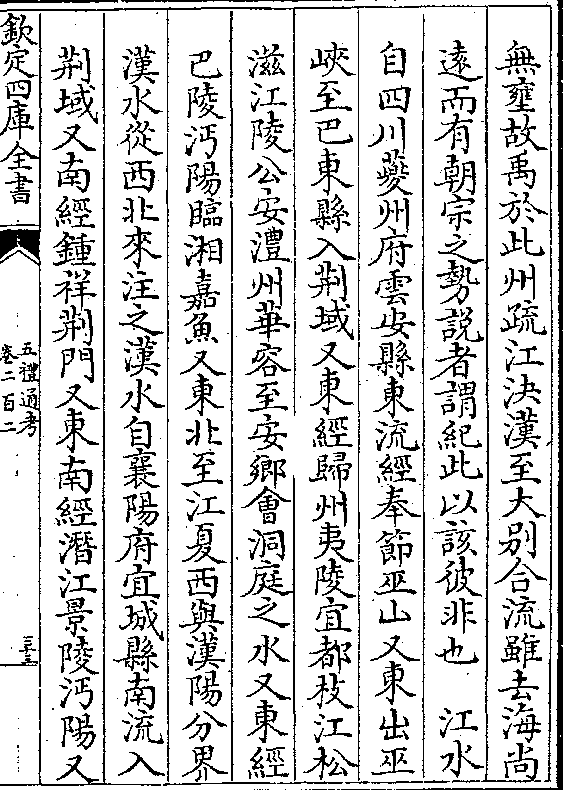 無壅故禹於此州疏江決漢至大别合流雖去海尚
逺而有朝宗之勢説者謂紀此以該彼非也　江水
自四川夔州府雲安縣東流經奉節巫山又東出巫
峽至巴東縣入荆域又東經歸州夷陵宜都枝江松
滋江陵公安澧州華容至安鄉會洞庭之水又東經
巴陵沔陽臨湘嘉魚又東北至江夏西與漢陽分界
漢水從西北來注之漢水自襄陽府宜城縣南流入
荆域又南經鍾祥荆門又東南經潛江景陵沔陽又
欽定四庫全書
五禮通考
卷二百二
三十三